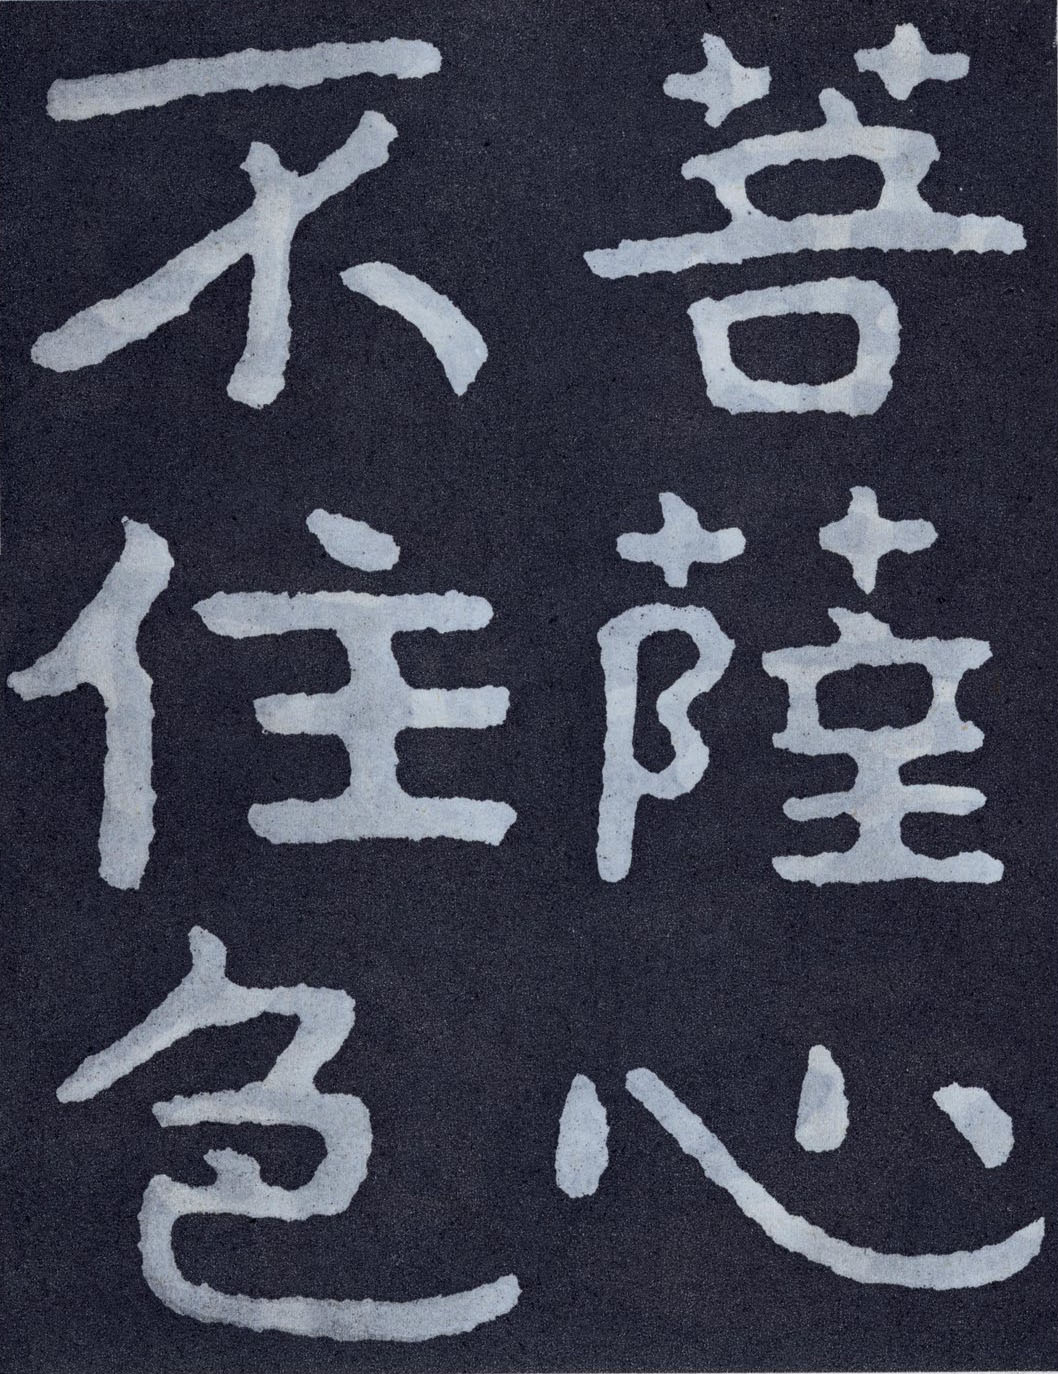 菩薩心
不住色